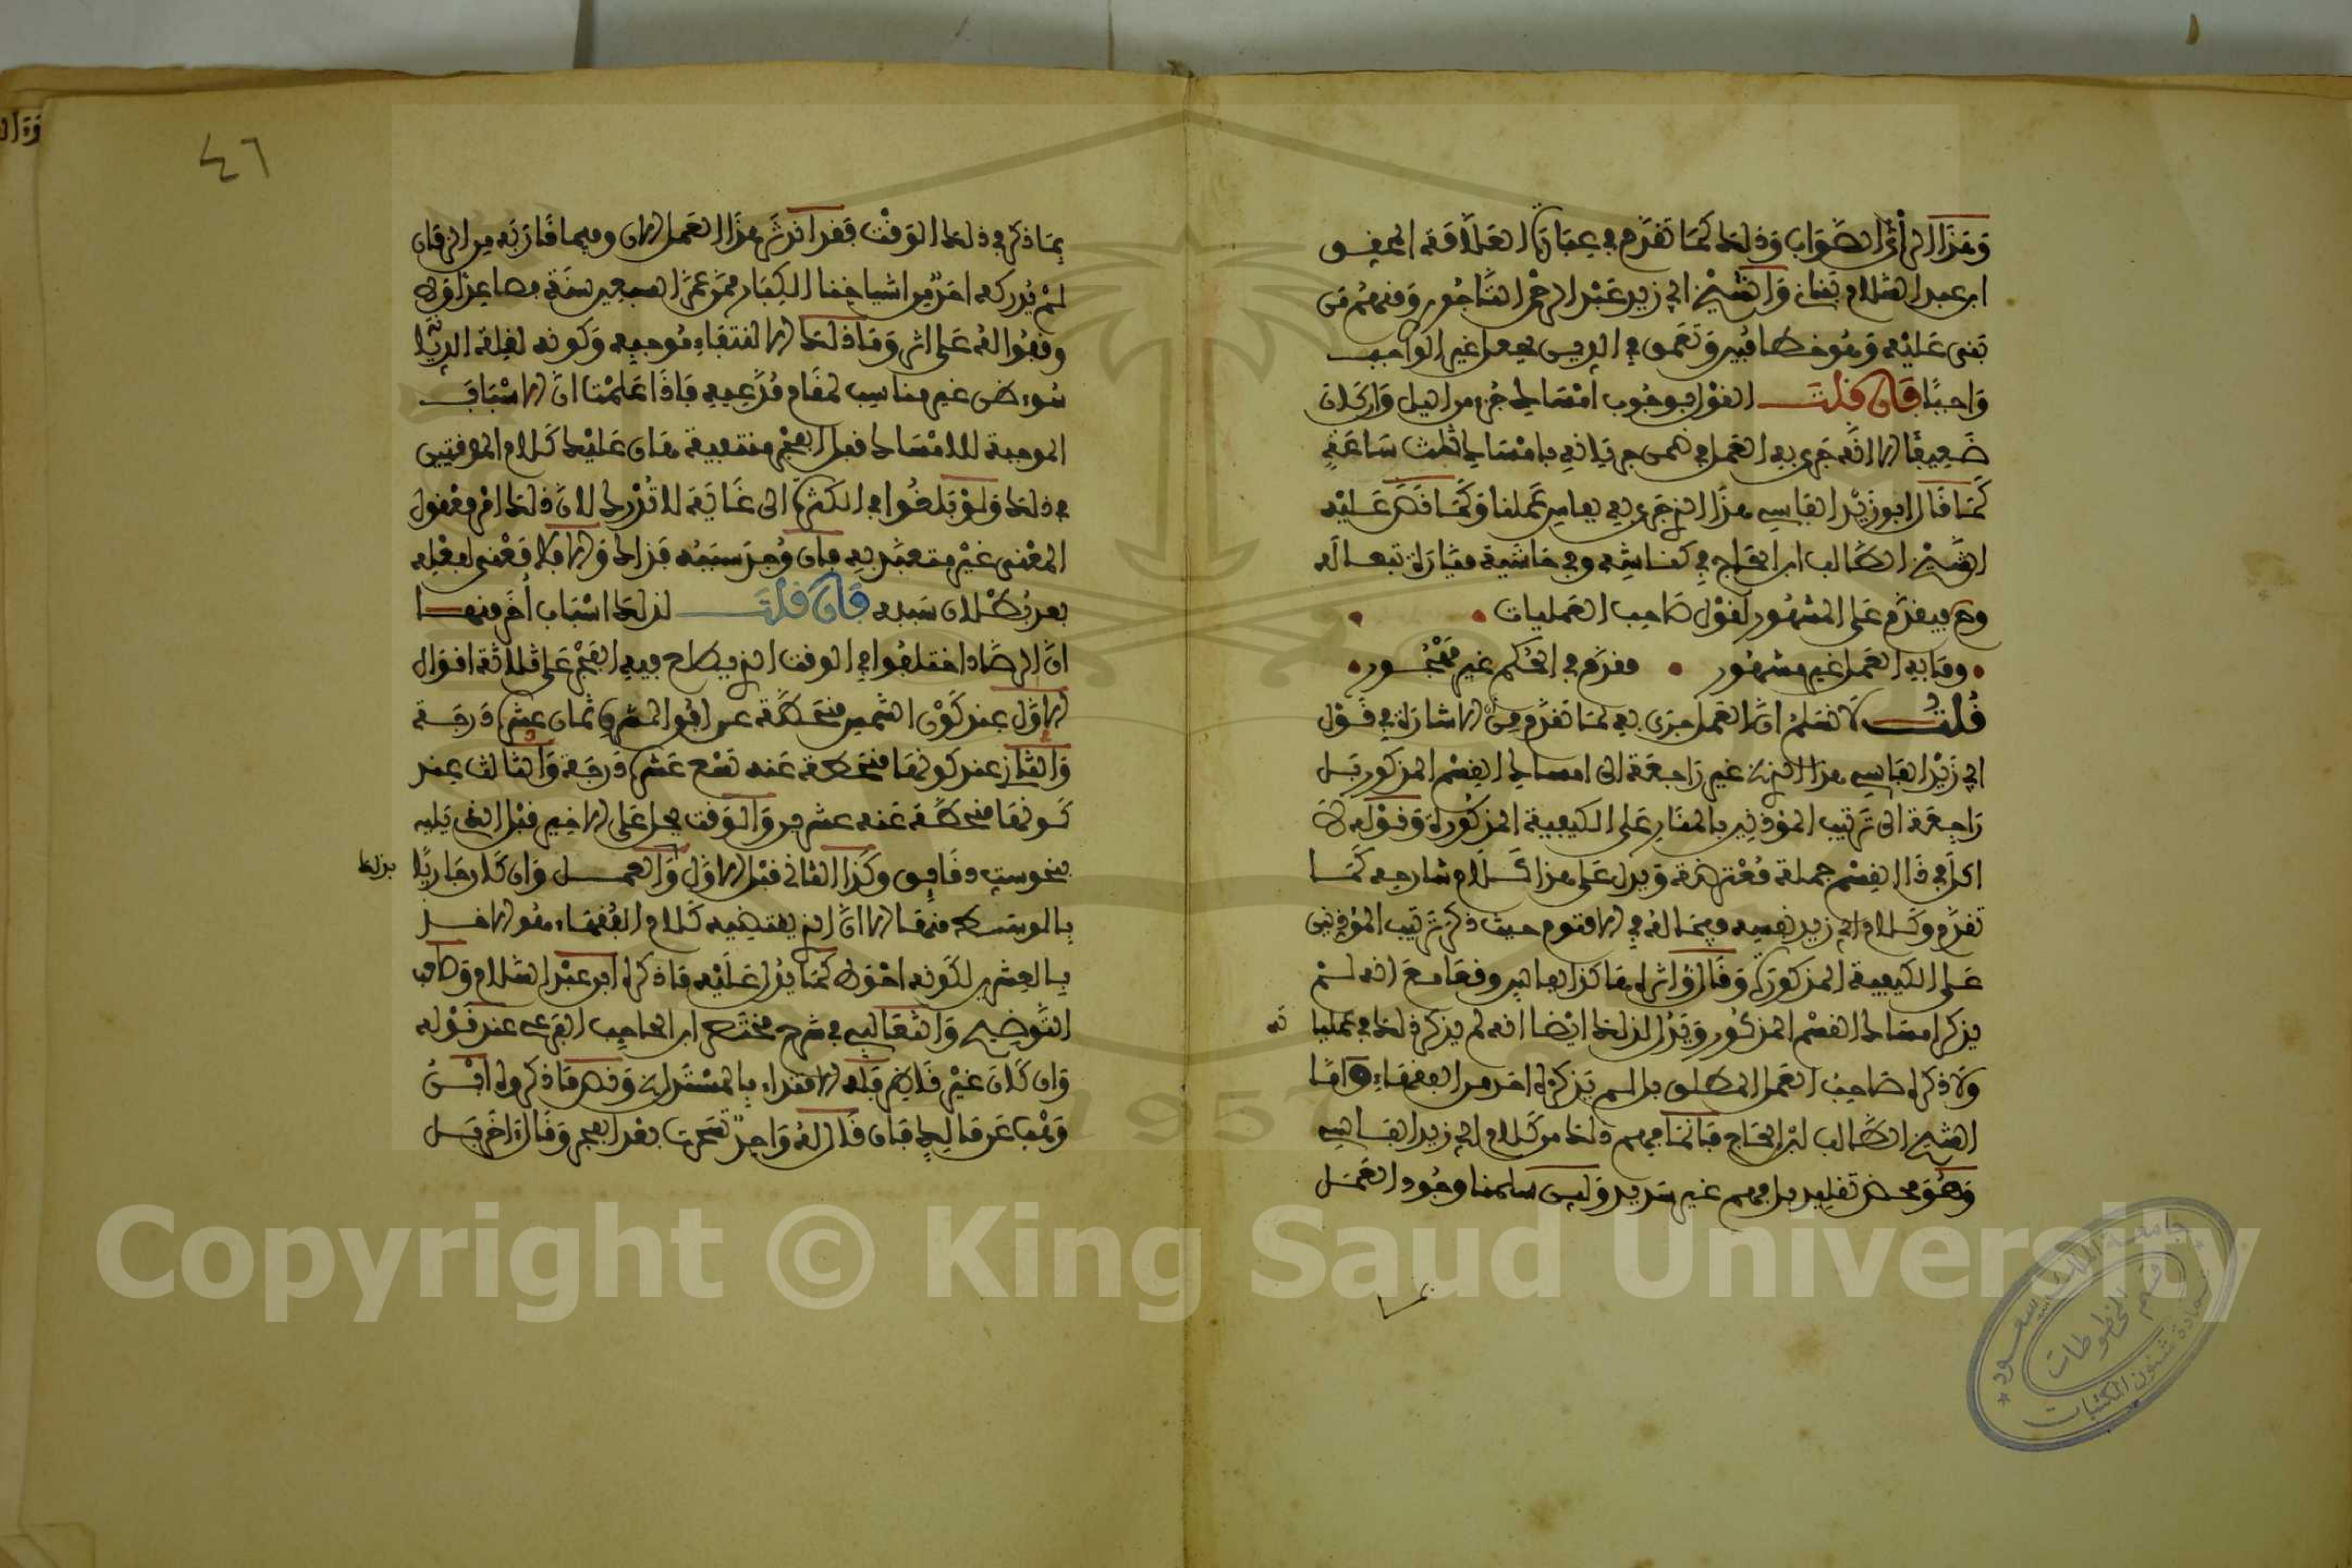 وهذا الرأي الصواب وذلك كما تقدم في عبارة العلامة المحقق
ابن عبد السلام بناني والشيخ أبي زيد عبد الرحمن التاجوري ومنهم من
بنى عليه وهو خطأ كبير وتعمق في الدين بجعل غير الواجب
واجبا فإن قلت القول بوجوب امساك جزء من الليل وإن كان
ضعيفا إلا أنه جرى به العمل فمن جريانه بامساك ثلث ساعة
كما قال أبو زيد الفاسي هذا الذي جرى به بفاس عملنا وكما نص عليه
الشيخ الطالب ابن الحاج في كناشه وفي حاشية ميارة تبعا له
وح فيقدم على المشهور لقول صاحب العمليات
وما به العمل غير مشهور مقدم في الحكم غير مهجور
قلت لا نسلم أن العمل جرى به لما تقدم من أن الإشارة في قول
أبي زيد الفاسي هذا الذي غير راجعة إلى امساك القسم المذكور بل
راجعة إلى ترتيب المؤذنين بالمنار على الكيفية المذكورة وقوله
ذا القسم جملة معترضة ويدل على هذا كلام شارحه كما
تقدم وكلام أبي زيد نفسه حيث ذكر ترتيب المؤذنين
على الكيفية المذكورة وقال مع أنه لم
يذكر امساك القسم المذكور ويدل لذلك أيضا أنه لم يذكر ذلك في عمليا
ته
ولا ذكره صاحب العمل المطلق بل لم يذكره أحد من الفقهاء وأما
الشيخ الطالب ابن الحاج فإنما فهم ذلك من كلام أبي زيد الفاسي
وهو محض تقليد بل فهم غير سديد ولئن سلمنا وجود العمل
٤٦
بما ذكر في ذلك الوقت فقد اندثر هذا العمل الآن وفيما قاربه من الزمان
لم يدركه أحد من أشياخنا الكبار ممن عمر السبعين سنة فصاعدا ولا
وقفوا له على أثر وما ذلك إلا لانتفاء موجبه وكونه لغلبة الرياء
سوء ظن غير مناسب لمقام مدعيه فإذا علمت أن الأسباب
الموجبة للامساك قبل الفجر منتفية هان عليك كلام الموقتين
في ذلك ولو بلغوا في الكثرة إلى غاية لا تدرك لأن ذلك أمر معقول
المعنى غير متعبد به فإن وجد سببه فذاك وإلا فلا معنى لفعله
بعد بطلان سببه فإن قلت لذلك أسباب أخر منها
أن الرصاد اختلفوا في الوقت الذي يطلع فيه الفجر على ثلاثة أقوال
الأول عند كون الشمس منحطة عن أفق المشرق ثمان عشرة درجة
والثاني عند كونها منحطة عنه تسع عشرة درجة والثالث عند
كونها منحطة عنه عشرين والوقت يحل على الأخير قبل الذي يليه
بنحو ست دقائق وكذا الثاني قبل الأول والعمل وإن كان جاريا
بذلك
بالوسط منها إلا أن الذي يقتضيه كلام الفقهاء هو الأخذ
بالعشرين لكونه أحوط كما يدل عليه ما ذكره ابن عبد السلام وصاحب
التوضيح والثعالبي في شرح مختصر ابن الحاجب الفرعي عند قوله
وإن كان غير ناظر فله الاقتداء بالمستدل ونص ما ذكروه
وهب عن مالك فإن قال له واحد تسحرت بعد الفجر وقال آخر قبل
Copyright © King Saud University
1957
جامعة الملك سعود
قسم المخطوطات
عمادة شئون المكتبات